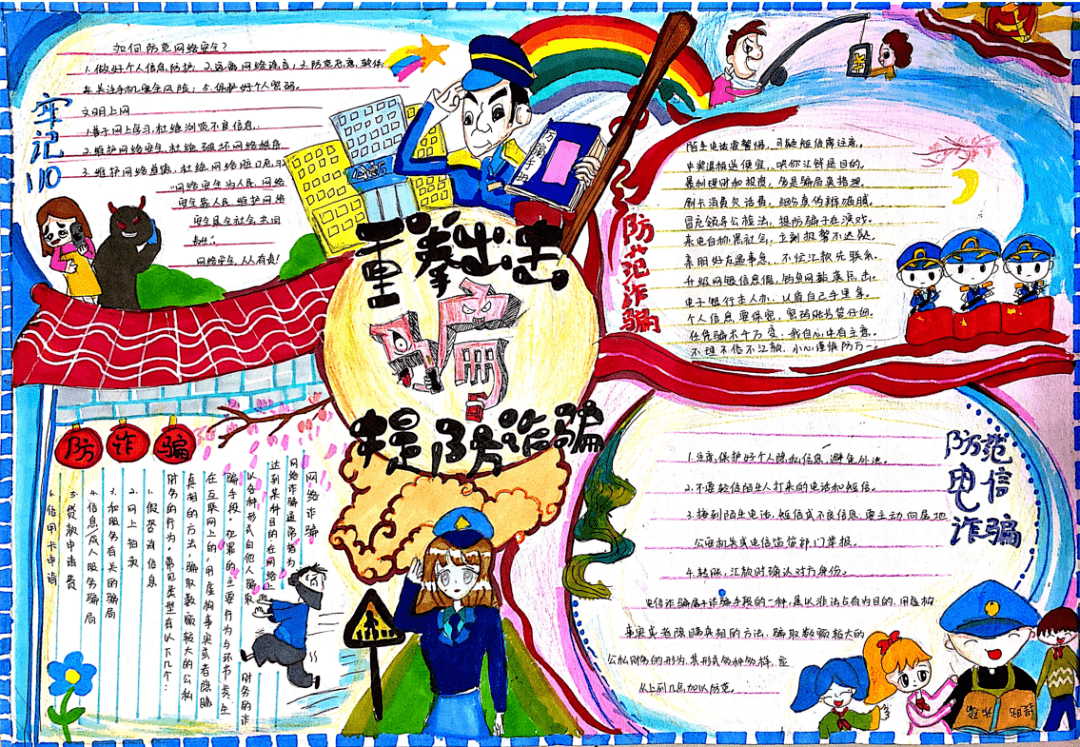 如何防范网络安全?
1.做好个人信息防护;2.远离网络谣言;3.防范恶意软件
4.关注手机安全风险;5.保护好个人密码。
文明上网
1.善于网上学习,杜绝浏览不良信息;
2.维护网络安全,杜绝破坏网络秩序
3.维护网络道德,杜绝网络
网络安全为人民,网络
安全靠人民,维护网络
安全是全社会共同
网络安全,人人有责!
牢记110
重拳出击
提防诈骗
防范诈骗
陌生电话要警惕,可疑短信需注意。
中奖退税送便宜,哄你汇钱是目的。
暴利理财和投资,多是骗局莫搭理。
刷卡消费欠话费,细分真伪辨猫腻。
冒充领导公检法,提防骗子在演戏。
来电自称黑社会,立刻报警不迟疑。
亲朋好友遇事急,不忙汇款先联系。
升级网银信息假,钓鱼网勒莫点击。
电子银行专人办,
个人信息要保密,密码账号
任凭骗术千万变,我自心中有主意。
不理不信不汇款,小心谨慎防万一。
防诈骗
网络诈骗
网络诈骗通常指为
达到某种目的在网络上
以各种形式向他人骗取
财务的诈
骗手段。犯罪的主要行为与环节发生
在互联网上的,用虚构事实或者隐瞒
真相的方法,骗取数额较大的公私
财务的行为。常见类型有以下几个:
1.假咨询信息
2.网上拍卖
3.和服务有关的骗局
4.信息/成人服务骗局
5.贷款申请费
6.信用卡申请
防范电信诈骗
1.注意保护好个人隐私信息,避免外泄。
2.不要轻信陌生人打来的电话和短信。
3.接到陌生电话、短信或不良信息,要主动向属地
公安机关或电信监管部门举报。
4.转账、汇款时确认对方身份。
电信诈骗属于诈骗手段的一种,是以非法占有为目的,用虚构
事实或者隐瞒真相的方法,骗取数额较大的
公私财务的行为,其形式多种多样,应
从上到几点加以防范。